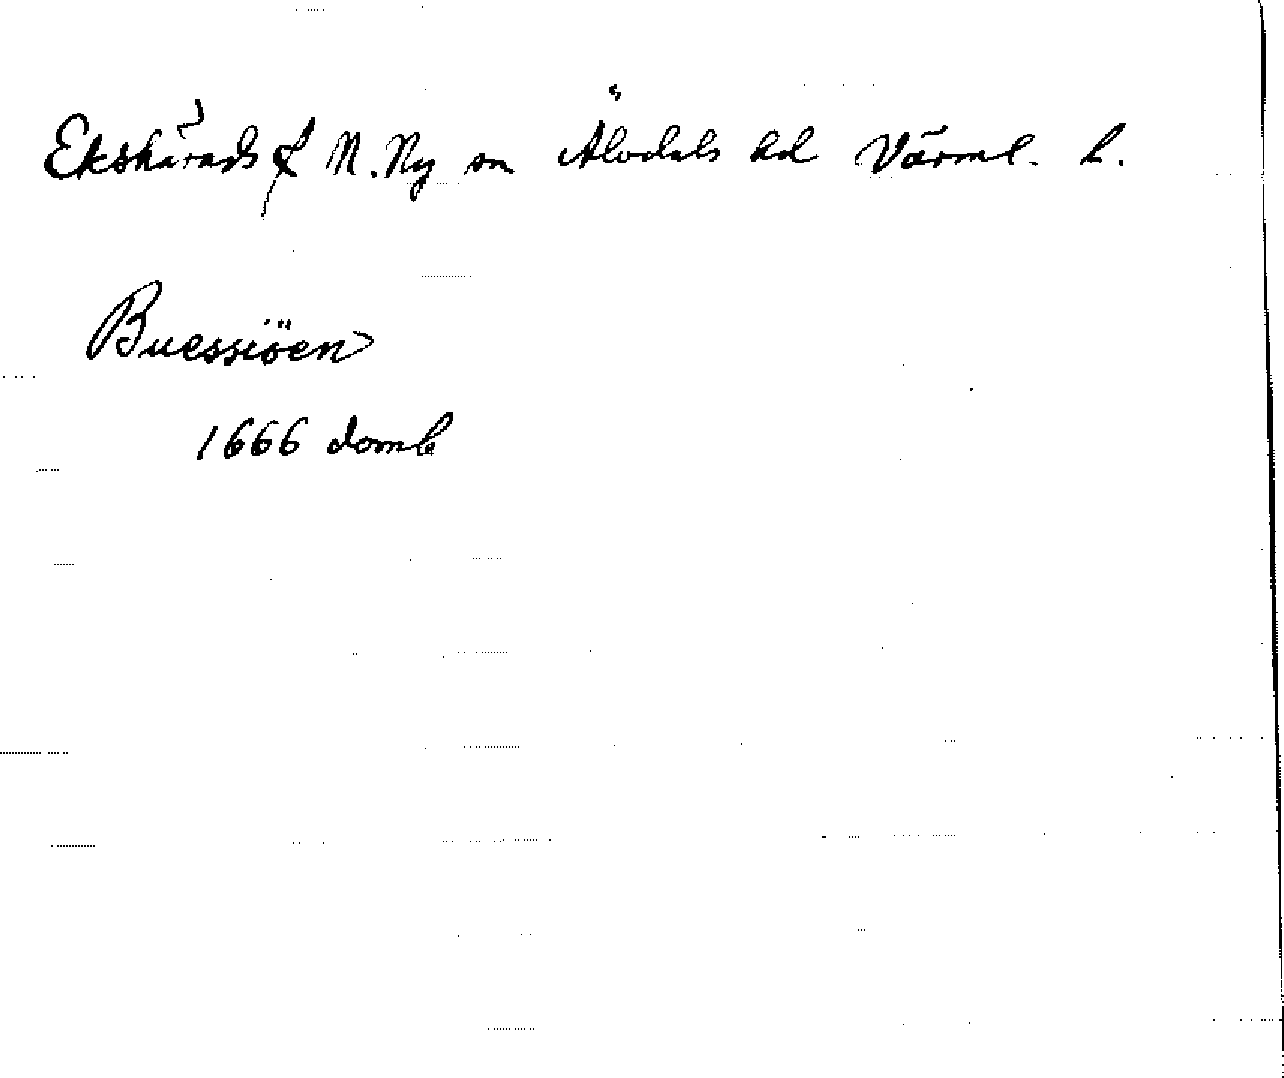 Ekshärads f N. Ny sn Älvdals hd Värml. l.
Buessiöen
1666 domb